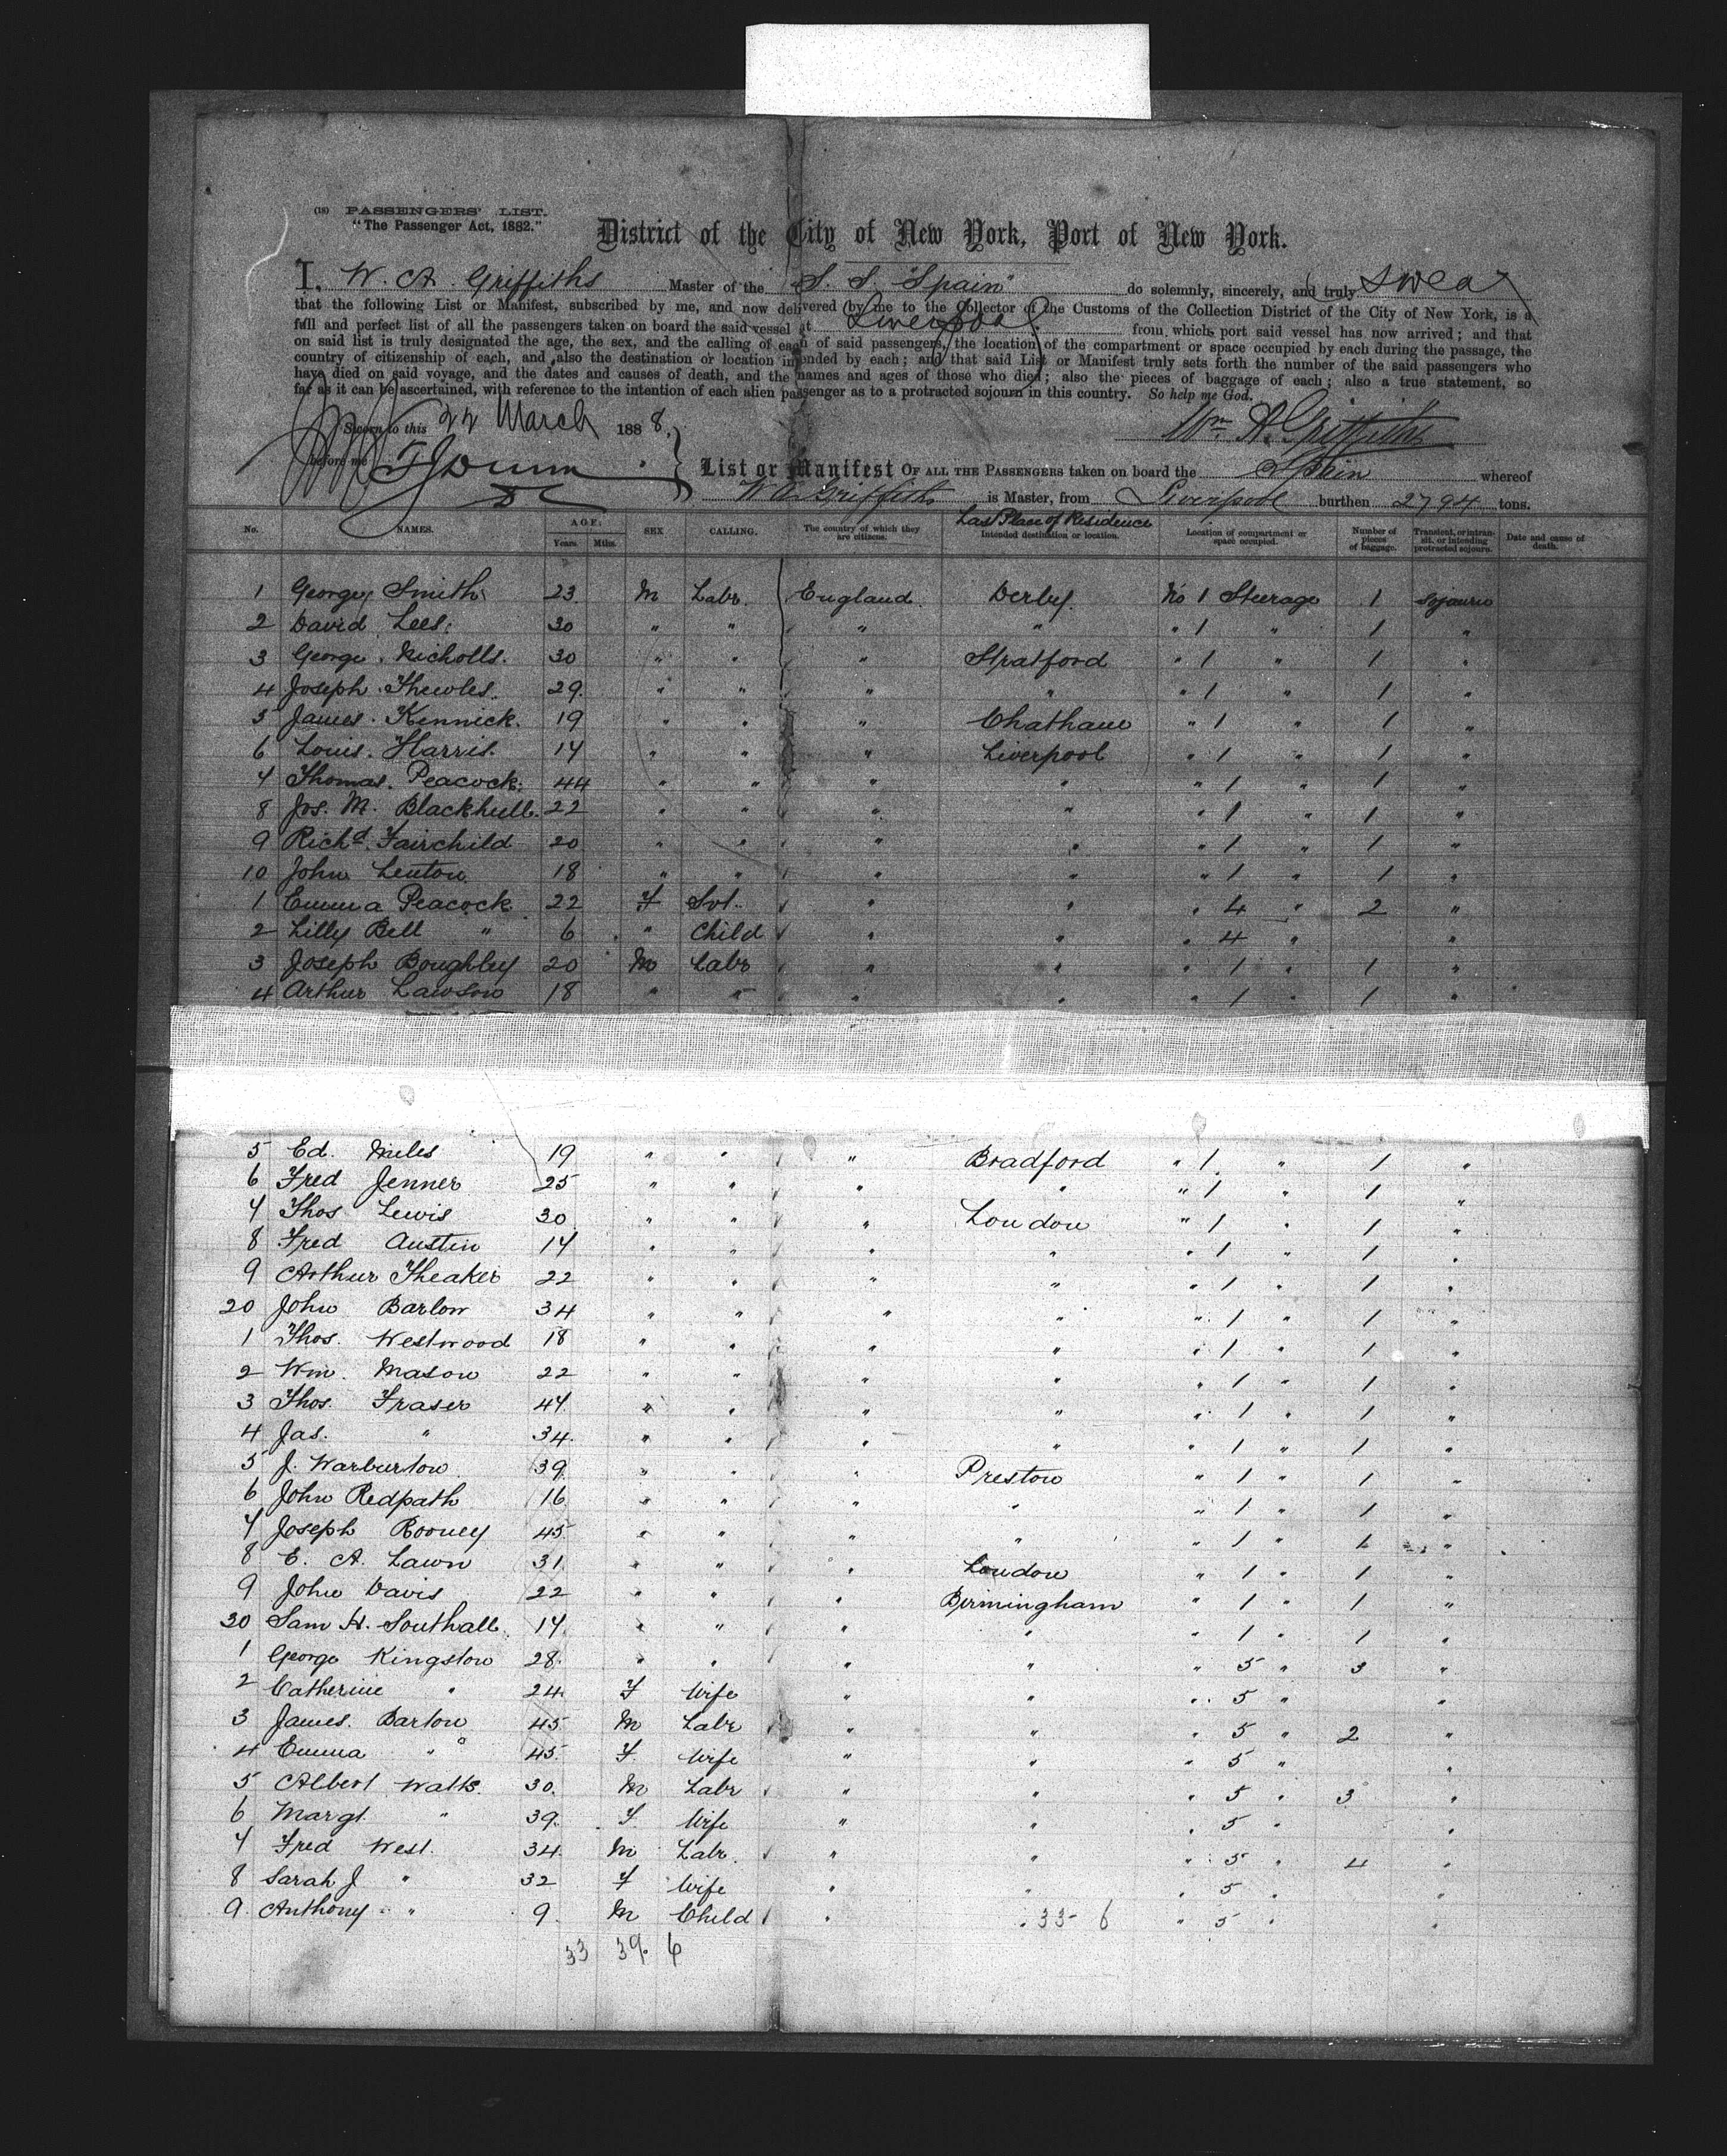 (18) PASSENGERS' LIST.
"The Passenger Act, 1882."
District of the City of New York, Port of New York.
I, W. A. Griffiths Master of the S. S. "Spain" do solemnly, sincerely, and truly swear
that the following List or Manifest, subscribed by me, and now delivered by me to the Collector of the Customs of the Collection District of the City of New York, is a
full and perfect list of all the passengers taken on board the said vessel at Liverpool from which port said vessel has now arrived; and that
on said list is truly designated the age, the sex, and the calling of each of said passengers, the location of the compartment or space occupied by each during the passage, the
country of citizenship of each, and also the destination or location intended by each; and that said List or Manifest truly sets forth the number of the said passengers who
have died on said voyage, and the dates and causes of death, and the names and ages of those who died; also the pieces of baggage of each; also a true statement, so
far as it can be ascertained, with reference to the intention of each alien passenger as to a protracted sojourn in this country. So help me God.
Sworn to this 22 March 1888,
Wm A. Griffiths
before me
List or Manifest OF ALL THE PASSENGERS taken on board the Spain whereof
W A Griffiths is Master, from Liverpool burthen 2794 tons.
No. NAMES. AGE. Years. Mths. SEX CALLING. The country of which they are citizens. Last Place of Residence Intended destination or location. Location of compartment or space occupied. Number of pieces of baggage. Transient, or in transit, or intending protracted sojourn. Date and cause of death.
1 George Smith 23 M Labr. England Derby. No 1 Steerage 1 Sojourn
2 David Lees 30 " " " " " 1 " 1 "
3 George Nicholls. 30 " " " Stratford " 1 " 1 "
4 Joseph Thewles. 29. " " " " " 1 " 1 "
5 James Kennick. 19 " " " Chatham " 1 " 1 "
6 Louis Harris. 17 " " " Liverpool " 1 " 1 "
7 Thomas Peacock. 44 " " " " " 1 " 1 "
8 Jos. M. 22 " " " " " 1 " 1 "
9 Richd. Fairchild 20 " " " " " 1 " 1 "
10 John Lenton 18 " " " " " 1 " 1 "
1 Emma Peacock 22 F Svt. " " " 4 " 2 "
2 Lilly Bell " 6 " Child " " " 4 " "
3 Joseph Boughley 20 M Labr " " " 1 " 1 "
4 Arthur Lawson 18 " " " " " 1 " 1 "
5 Ed. Miles 19 " " " Bradford " 1 " 1 "
6 Fred Jenner 25 " " " " " 1 " 1 "
7 Thos Lewis 30 " " " London " 1 " 1 "
8 Fred Austin 17 " " " " " 1 " 1 "
9 Arthur Theaker 22 " " " " " 1 " 1 "
20 John Barlow 34 " " " " " 1 " 1 "
1 Thos. Westwood 18 " " " " " 1 " 1 "
2 Wm. Mason 22 " " " " " 1 " 1 "
3 Thos. Fraser 47 " " " " " 1 " 1 "
4 Jas. " 34. " " " " " 1 " 1 "
5 J. Warburton 39. " " " Preston " 1 " 1 "
6 John Redpath 16 " " " " " 1 " 1 "
7 Joseph Rooney 45. " " " " " 1 " 1 "
8 E. A. Lawn 31. " " " London " 1 " 1 "
9 John Davis 22 " " " Birmingham " 1 " 1 "
30 Sam H. Southall 17. " " " " " 1 " 1 "
1 George Kingston 28. " " " " " 5 " 3 "
2 Catherine " 24. F Wife " " " 5 " "
3 James. Barton 45. M Labr " " " 5 " 2 "
4 Emma " 45. F. Wife " " " 5 " "
5 Albert Watts. 30. M Labr " " " 5 " 3 "
6 Margt. " 39. F. Wife " " " 5 " "
7 Fred West. 34. M Labr. " " " 5 " 4 "
8 Sarah J " 32 F Wife " " " 5 " "
9. Anthony " 9. M Child " 33- 6 " 5 " "
33 39. 6